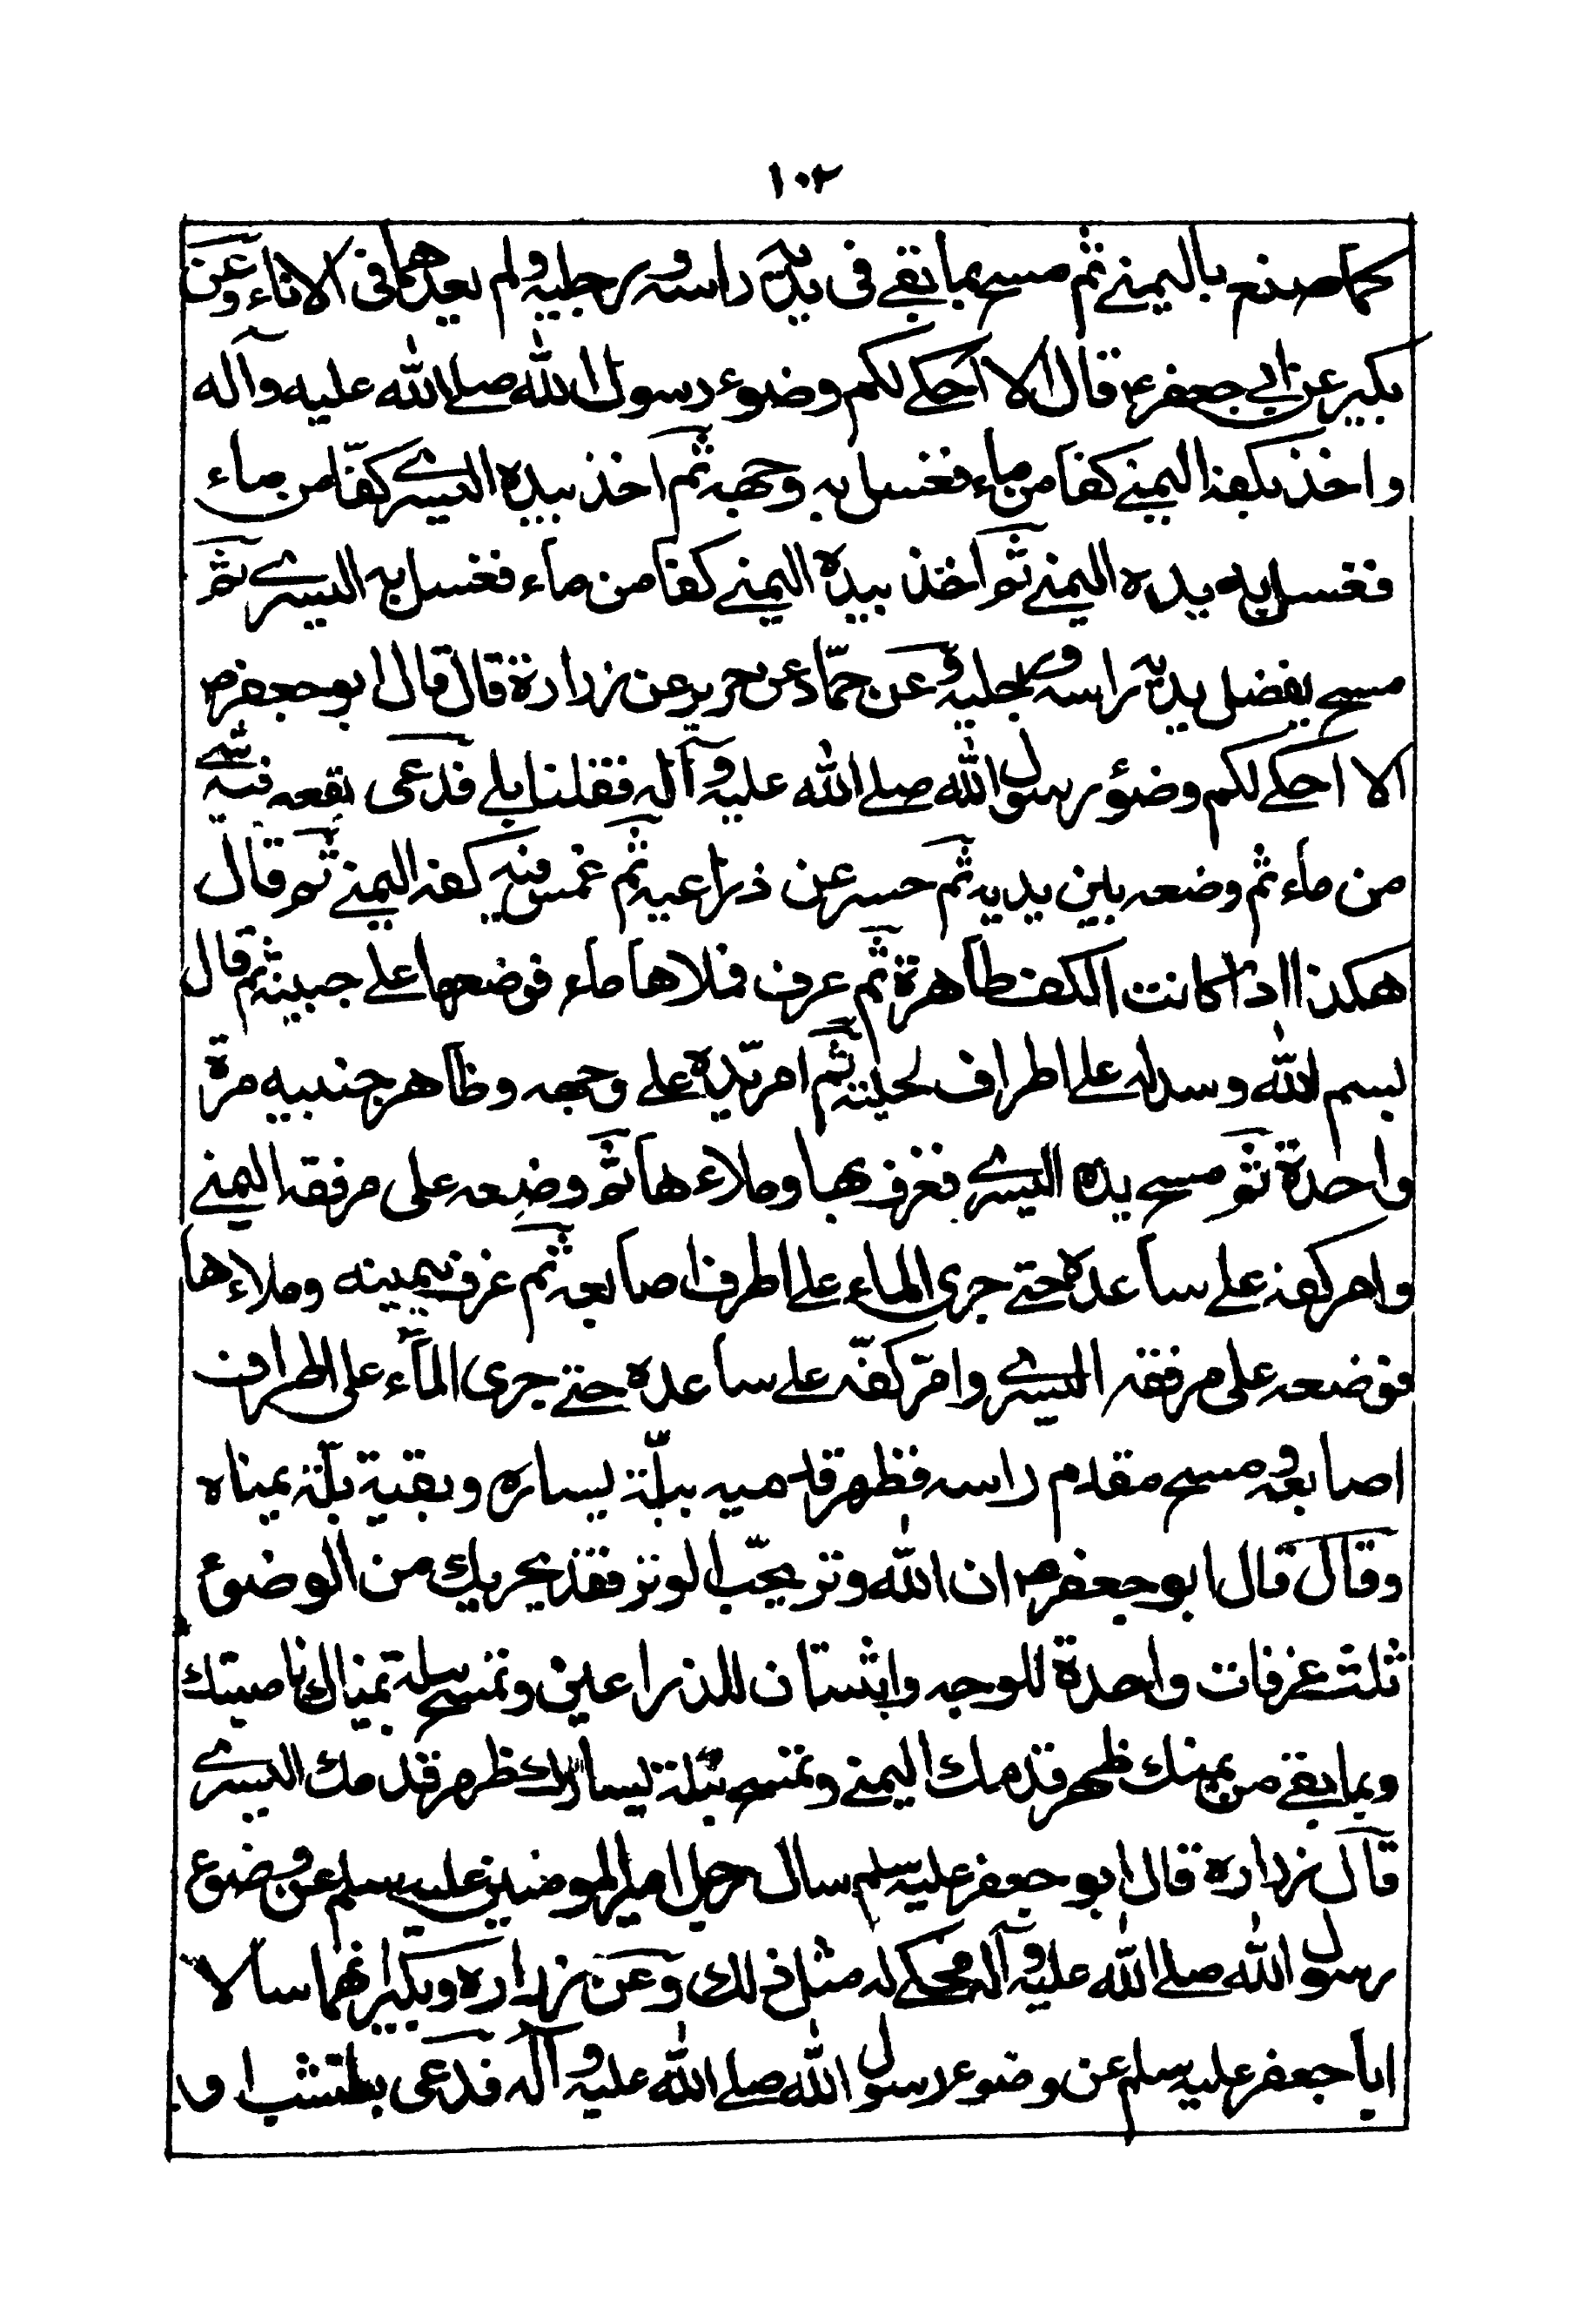 ١٠٢
كما صنع باليمنے ثم مسح بما بقے فى يديه راسه ورجليه ولم يعدهما فى الاناء وعن
بكير عن ابي جعفر ع قال الا احكے لكم وضوء رسول الله صلے الله عليه وآله
واخذ بكفه اليمنے كفا من ماء فغسل به وجهه ثم اخذ بيده اليسرے كفّا من ماء
فغسل به يده اليمنے ثم اخذ بيده اليمنے كفا من ماء فغسل به اليسرے ثم
مسح بفضل يديه راسه ورجليه وعن حمّاد عن حريز عن زرارة قال قال ابو جعفر ع
الا احكے لكم وضؤ رسول الله صلے الله عليه وآله فقلنا بلے فدعى بقعه فيه شے
من ماء ثم وضعه بين يديه ثم حسر عن ذراعيه ثم غمس فيه كفه اليمنے ثم قال
هكذا اذا كانت الكف طاهرة ثم عرف فملاها ماء فوضعها علے جبينه ثم قال
بسم الله وسدله علے اطراف لحيته ثم امر يده علے وجهه وظاهر جنبيه مرة
واحدة ثم مسح يده اليسرے فغرف بها وملاءها ثم وضعه على مرفقه اليمنے
وامر كفه علے ساعده حتے جرى الماء علے اطرف اصابعه ثم غرف بيمينه وملاءها
فوضعه على مرفقه اليسرے وامرّ كفّه علے ساعده حتے جرى المآء على اطراف
اصابعه ومسح مقدم راسه فظهر قدميه ببلّة يساره وبقية بلّة يمناه
وقال قال ابو جعفر ع ان الله وتر يحبّ الوتر فقد يجزيك من الوضوع
ثلث غرفات واحدة للوجه واثنتان للذراعين وتمسح ببلة يمناك ناصيتك
وبما بقے من يمينك ظهر قدمك اليمنے وتمسح ببلة يسارك ظهر قدمك اليسرے
قال زراره قال ابو جعفر عليه سلم سال رجل امير المومنين عليه سلم عن وضوع
رسول الله صلے الله عليه وآله فحكے له مثل ذلك وعن زراره وبكير انهما سالا
ابا جعفر عليه سلم عن وضوع رسول الله صلے الله عليه وآله فدعى بطشت او